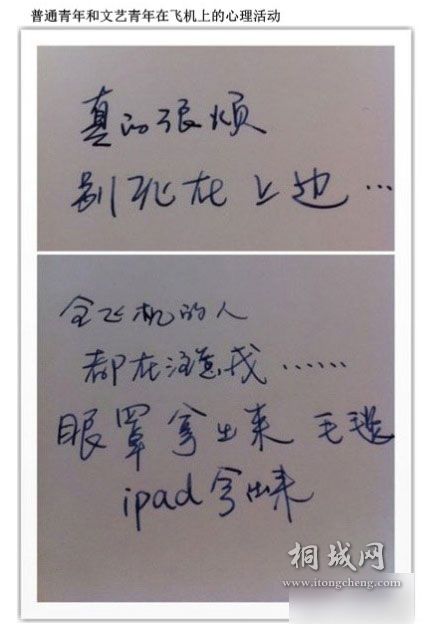 普通青年和文艺青年在飞机上的心理活动
真的很烦
别死在上边…
全飞机的人
都在注意我……
眼罩拿出来 毛毯
ipad拿出来
桐城网
www.itongcheng.com